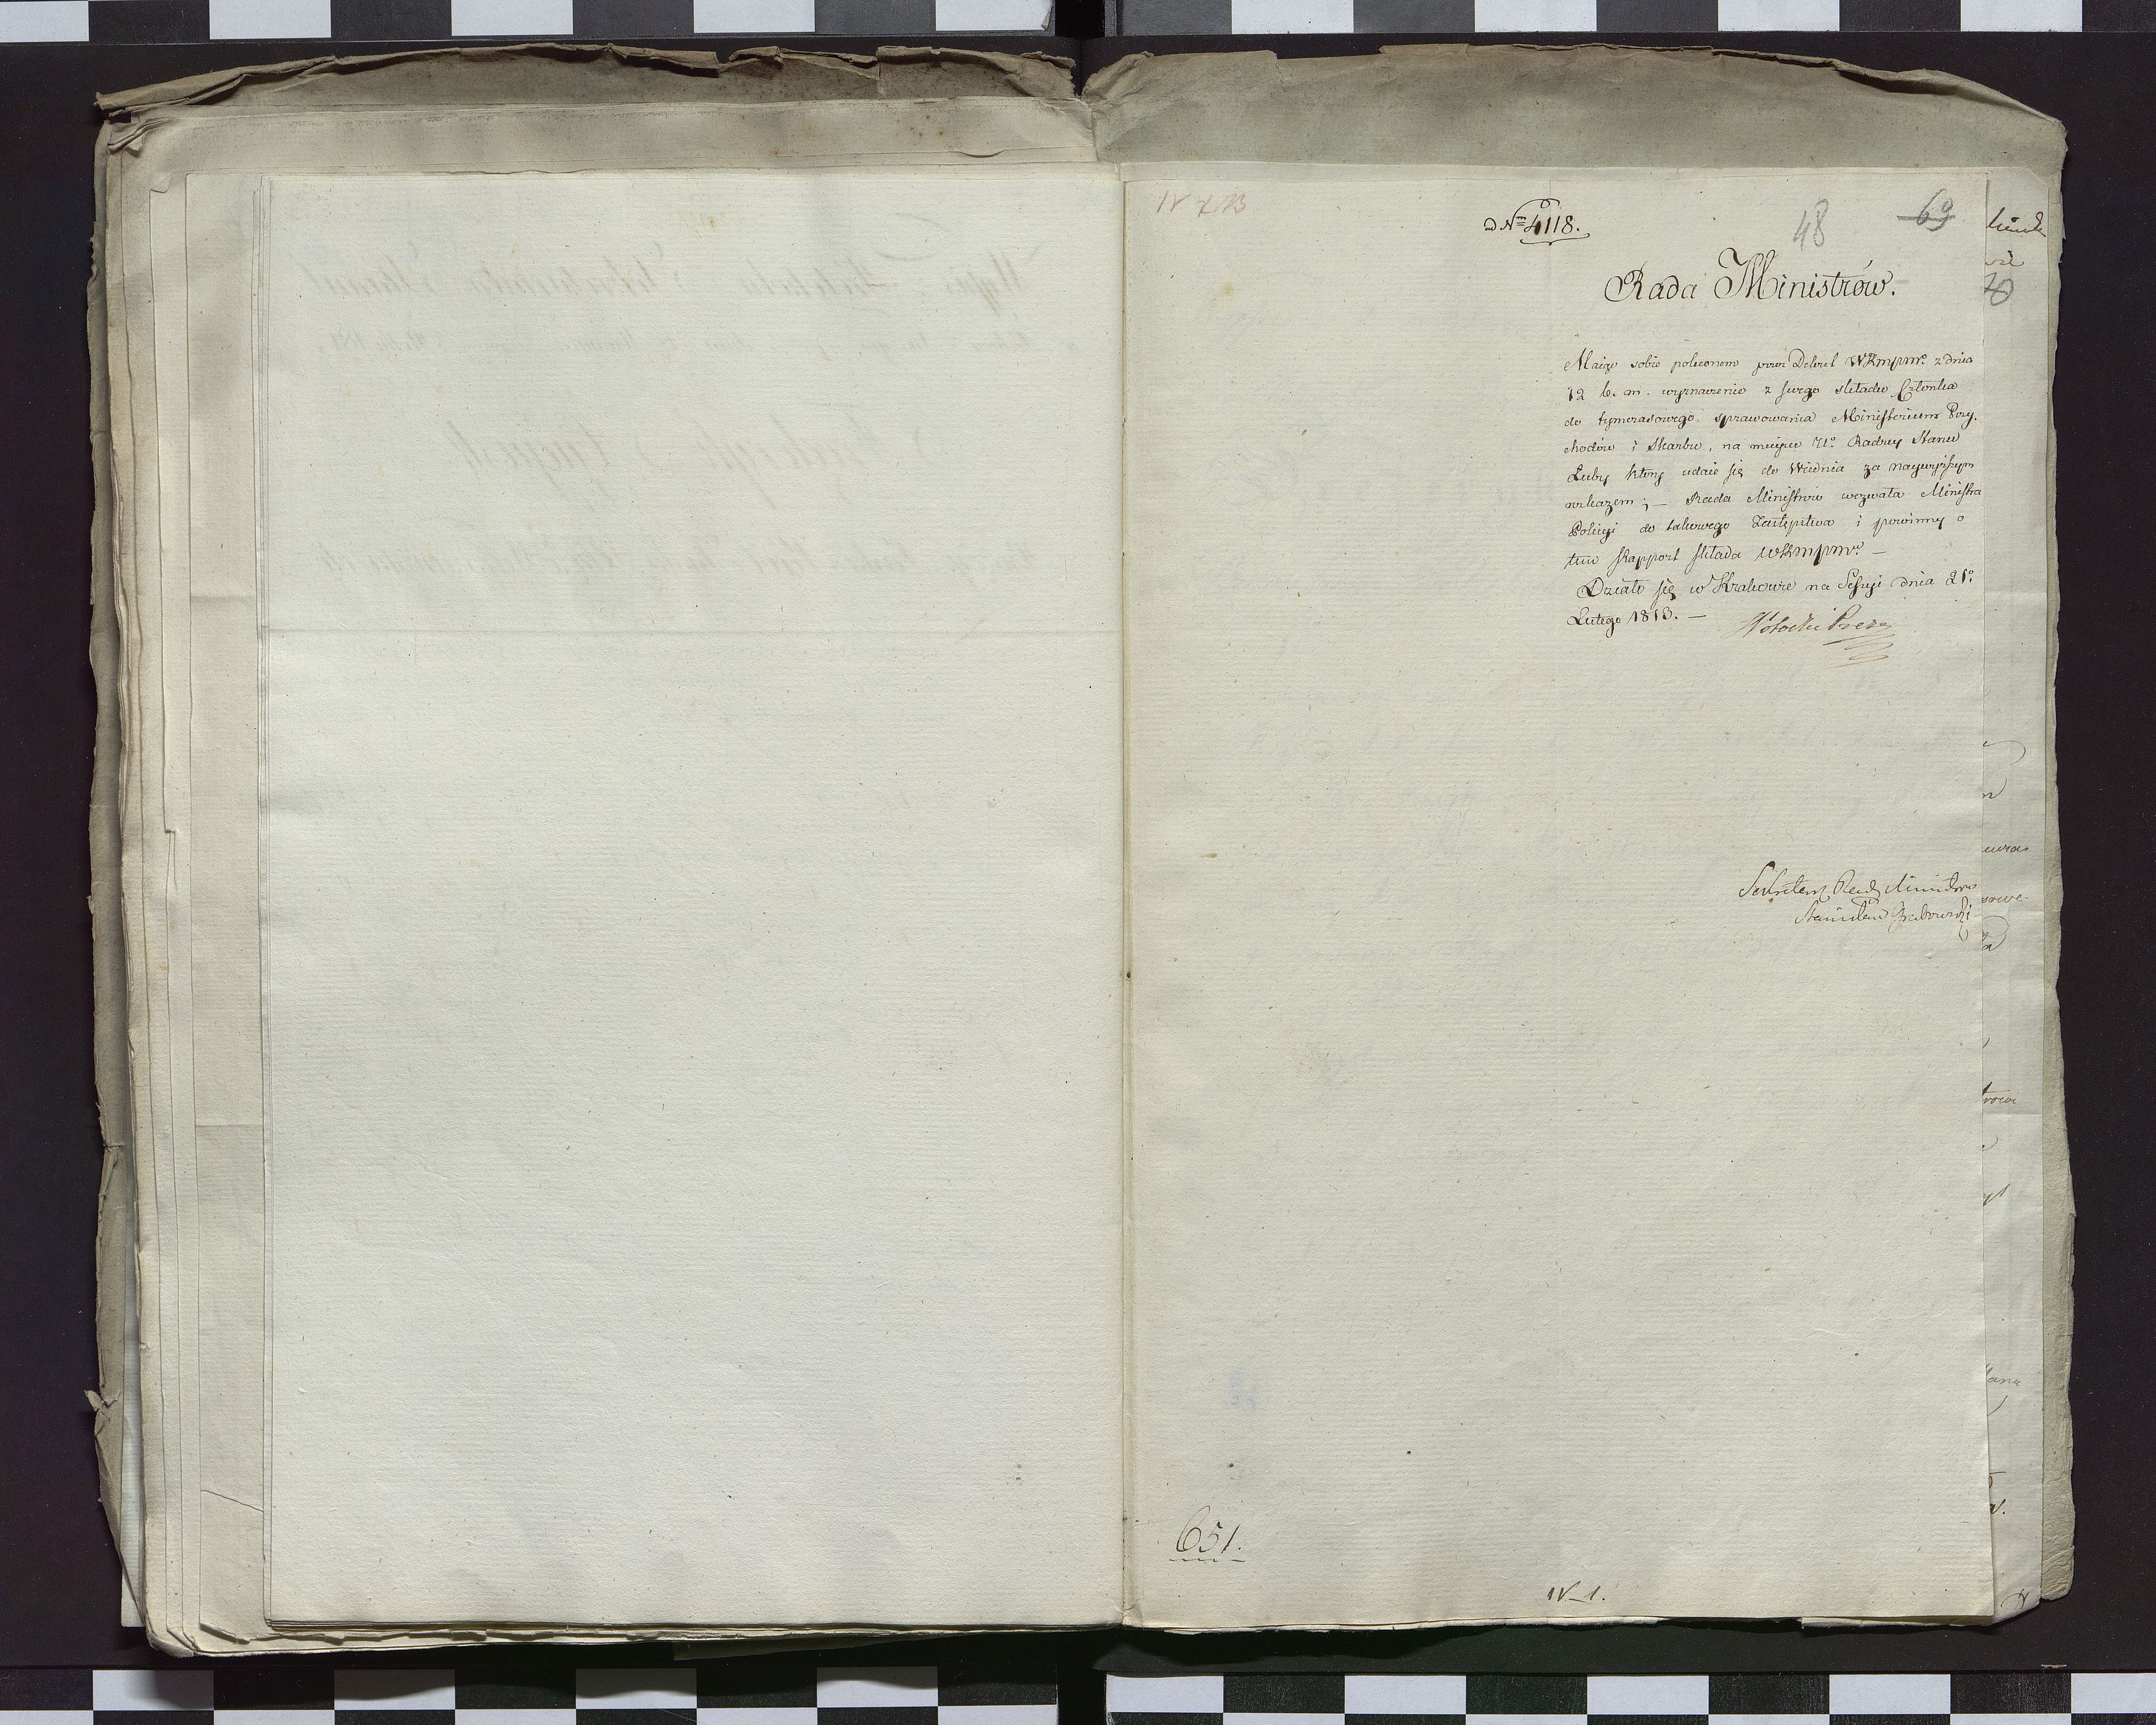 IV
ad Nm 4118.
48
69
Rada Ministrów.
Maiąc sobie polecone przez Dekret WKmpmci z dnia
12 b. m. wyznaczenie z swego składu Członka
do tymczasowego sprawowania Ministerium Przy-
chodów i Skarbu, na mieysce JWo Radzcy Stanu
Łuby który udaie się do Wiednia za naywyższym
rozkazem; — Rada Ministrów wezwała Ministra
Policyi do takowego Zastępstwa i powinny o
tem Rapport składa WKmpmci —
Działo się w Krakowie na Sessyi dnia 21o
Lutego 1813. —
Sekretarz Rady Ministrów
Stanisław Grabowski
651.
IV–1.